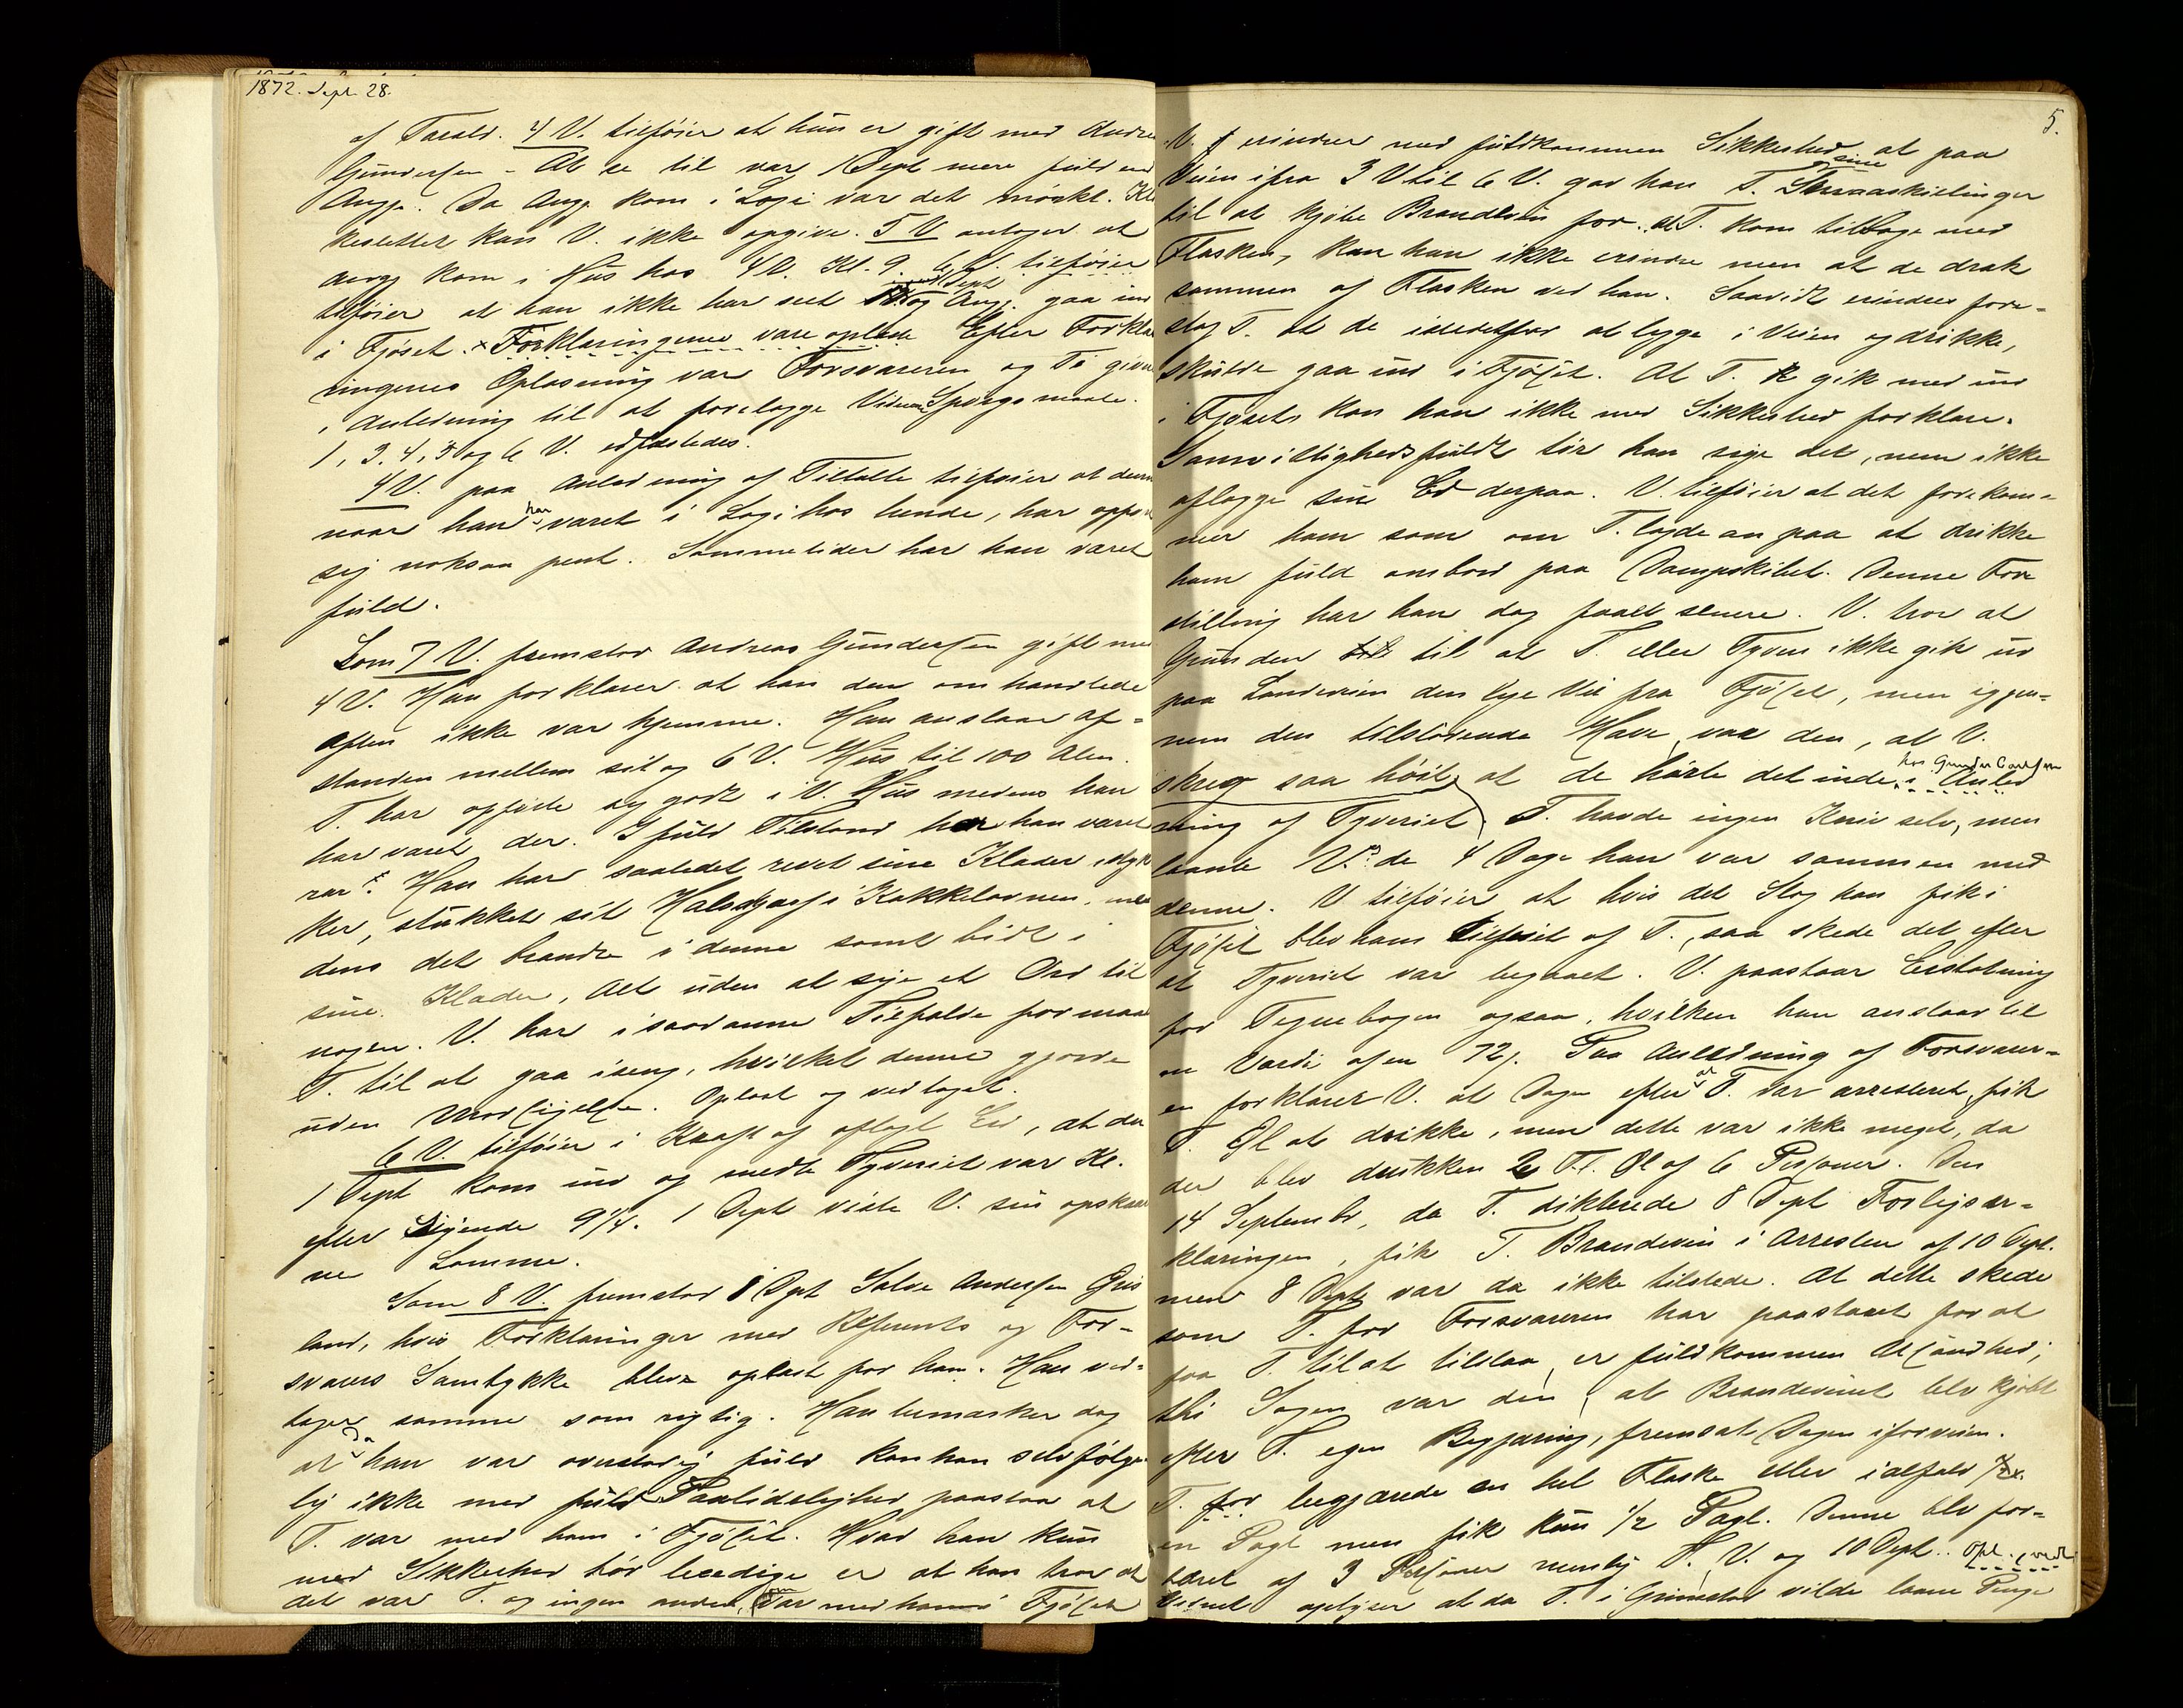 1872. Sept. 28.
af Tarald. 4 V. tilføier at hun er gift med Andrea
Gundersen - At se til var 1 Dept mere fuld end
Angj. Da Angj. kom i Logi var det mørkt. Kl
keslettet kan V. ikke opgive. 5 V antager at
angj kom i Hus hos 4 V. Kl. 9. 6 V. tilføier
tilføier at han ikke har seet 1 Dept og Angj. gaa ind
i Fjøset. Forklaringerne vare oplæste Efter Forkla
ringernes Oplæsning var Forsvareren og Tt given
Anledning til at forelægge Vidnerne Spørgsmaale.
1, 3, 4, 5 og 6 V. edfæstedes.
4 V. paa Anledning af Tiltalte tilføier at denne
naar han har været i Logi hos hende, har opført
sig noksaa pent. Sommetider har han været
fuld.
Som 7 V. fremstod Andreas Gundersen gift med
4 V. Han forklarer at han den omhandlede
Aften ikke var hjemme. Han anslaar Af-
standen mellem sit og 6 V. Hus til 100 Alen.
T. har opført sig godt i V. Hus medens han
har været der. I fuld Tilstand har han været
rar. Han har saaledes revet sine Klæder i Styk
ker, stukket sit Halstørklæ i Kakkelovnen, me
dens det brændte i denne samt bidt i
sine Klæder, Alt uden at sige et Ord til
nogen. V. har i saadanne Tilfælde formaaet
T. til at gaa iseng, hvilket denne gjorde
uden Modsigelse. Oplæst og vedtaget.
6 V. tilføier i Kraft af aflagt Ed, at da
1 Dept kom ind og meldte Tyveriet var Kl.
efter Sigende 9 1/4. 1 Dept viste V. sin opskaar
ne Lomme.
Som 8 V. fremstod 8 Dept Salve Andersen Gris
land, hvis Forklaringer med Referents og For-
svarers Samtykke bleve oplæst for ham. Han ved-
tager samme som rigtig. Han bemærker dog
at da han var overstadig fuld kan han selvfølge
lig ikke med fuld Paalidelighed paastaa at
T. var med ham i Fjøset. Hvad han kun
med Sikkerhed tør beedige er at han tror at
det var T. og ingen anden, som var med ham i Fjøset
5.
V. erindrer med fuldkommen Sikkerhed at paa
Veien ifra 3 V til 6 V. gav han T. sine Smaaskillinger
til at kjøbe Brændevin for. At T. kom tilbage med
Flasken, kan han ikke erindre men at de drak
sammen af Flasken ved han. Saavidt erindres fore-
slog T. at de istedetfor at ligge i Veien og drikke,
skulde gaa ind i Fjøset. At T. gik med ind
i Fjøset kan han ikke med Sikkerhed forklare.
Samvittighedsfuldt tør han sige det, men ikke
aflægge sin Ed derpaa. V. tilføier at det forekom-
mer ham som om T. lagde an paa at drikke
ham fuld ombord paa Dampskibet. Denne Fore
stilling har han dog faaet senere. V. tror at
Grunden til at T. eller Tyven ikke gik ud
paa Landeveien den lige Vei fra Fjøset, men igjen-
nem den tilstødende Have var den, at V.
skreg saa høit at de hørte det inde hos Gunder Carlsen i Anled
ning af Tyveriet. T. havde ingen Kniv selv, men
laante V.s de 4 Dage han var sammen med
denne. V tilføier at hvis det Slag han fik i
Fjøset blev ham tilføiet af T., saa skede det efter
at Tyveriet var begaaet. V. paastaar Erstatning
for Tegnebogen ogsaa, hvilken han anslaar til
en Værdi af en 72 s. Paa Anledning af Forsvarer-
en forklarer V. at Dagen efter at T. var arresteret, fik
T. Øl at drikke, men dette var ikke meget, da
der blev drukken 2 Fl. Øl af 6 Personer. Den
14 September, da T. dikterede 8 Dept Forligser-
klæringen, fik T. Brændevin i Arresten af 10 Dept.
men 8 Dept var da ikke tilstede. At dette skede
som T. for Forsvareren har paastaaet for at
faa T. til at tilstaa, er fuldkommen Usandhed;
thi Sagen var den, at Brændevinet blev kjøbt
efter T. egen Begjæring, fremsat Dagen iforveien.
T. for begjærede en hel Flaske eller ialfald
en Pægl men fik kun 1/2 Pægl. Denne blev for-
tæret af 3 Personer nemlig T. V. og 10 Dept. Opl. vedt
Vidnet oplyser at da T. i Grimstad vilde laane Penge